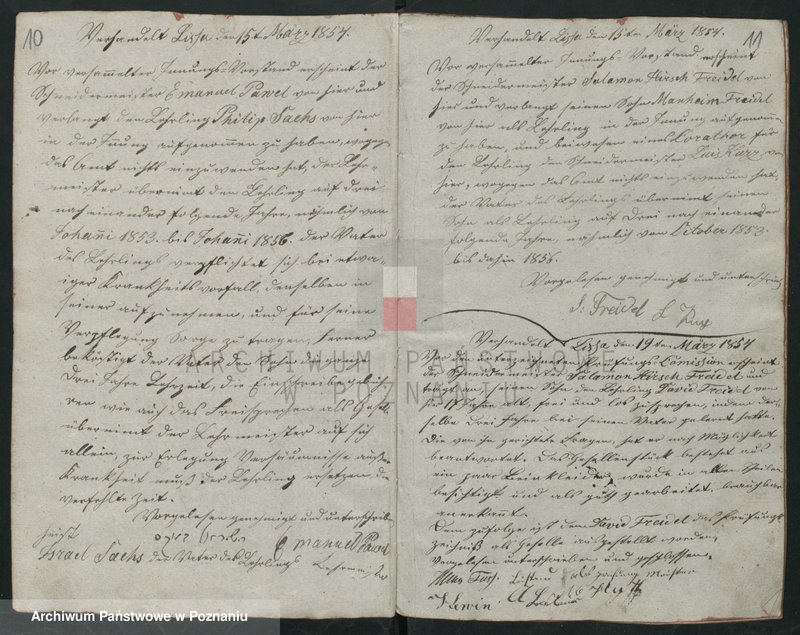 10
Verhandelt Lissa den 15t März 1854.
Vor versammelter Innungs-Vorstand erscheint der
Schneidermeister Emanuel Pawel von hier und
verlangt den Lehrling Philip Sachs von hier
in der Innung aufgenommen zu haben, wogegen
das Amt nichts einzuwenden hat, der Lehr-
meister übernimt den Lehrling auf drei
nach einander folgende Jahre, nähmlich von
Johañi 1853. bis Johañi 1856. der Vater
des Lehrlings verpflichtet sich bei etwa-
iger Krankheitsvorfall, denselben in
seiner aufzunehmen, und für seine
Verpflegung Sorge zu tragen, ferner
beköstigt der Vater den Sohn die ganze
drei Jahre Lehrzeit, die Einschreibegebüh-
ren wie auch das Freisprechen als Gesell
übernimt der Lehrmeister auf sich
allein, zur Erlegung Versäumnisse außer
Krankheit muß der Lehrling ersetzen die
verfehlte Zeit.
Vorgelesen genehmigt und unterschrieb
Israel Sachs der Vater des Lehrlings
Emanuel Pawel
Lehrmeister
11
Verhandelt Lissa den 15ten März 1854.
Vor versammelter Innungs-Vorstand erscheint
der Schneidermeister Salamon Hirsch Freidel von
hier und verlangt seinen Sohn Manheim Freidel
von hier als Lehrling in der Innung aufgenommen
zu haben, und beiwesen eines für
den Lehrling den Schneidermeister von
hier, wogegen das Amt nichts einzuwenden hat,
der Vater des Lehrlings übernimt seinen
Sohn als Lehrling auf drei nach einander
folgende Jahre, nähmlich von October 1853.
bis dahin 1856.
Vorgelesen genehmigt und unterschrieb
S: Freidel
Verhandelt Lissa den 19ten März 1854
Vor der unterzeichneten Prüfungs Comission erscheint
der Schneidermeister Salamon Hirsch Freidel und
seinen Sohn den Lehrling David Freidel von
hier 17 Jahre alt, frei und los zu sprechen, indem der-
selbe drei Jahre bei seinem Vater gelernt hatte.
Die von ihn gerichtete Fragen, hat er nach Möglichkeit
beantwortet. Das Gesellenstück bestehet aus
ein paar Beinkleider, wurde in allen Theilen
besichtigt und als gut gearbeitet, brauchbar
anerkannt.
Dem zufolge ist dem David Freidel das Prüfungs
zeichniß als Geselle ausgestellt worden,
Vorgelesen unterschrieben und geschlossen.
Meister
Lewin
ARCHIWUM PAŃSTWOWE
W POZNANIU
Archiwum Państwowe w Poznaniu